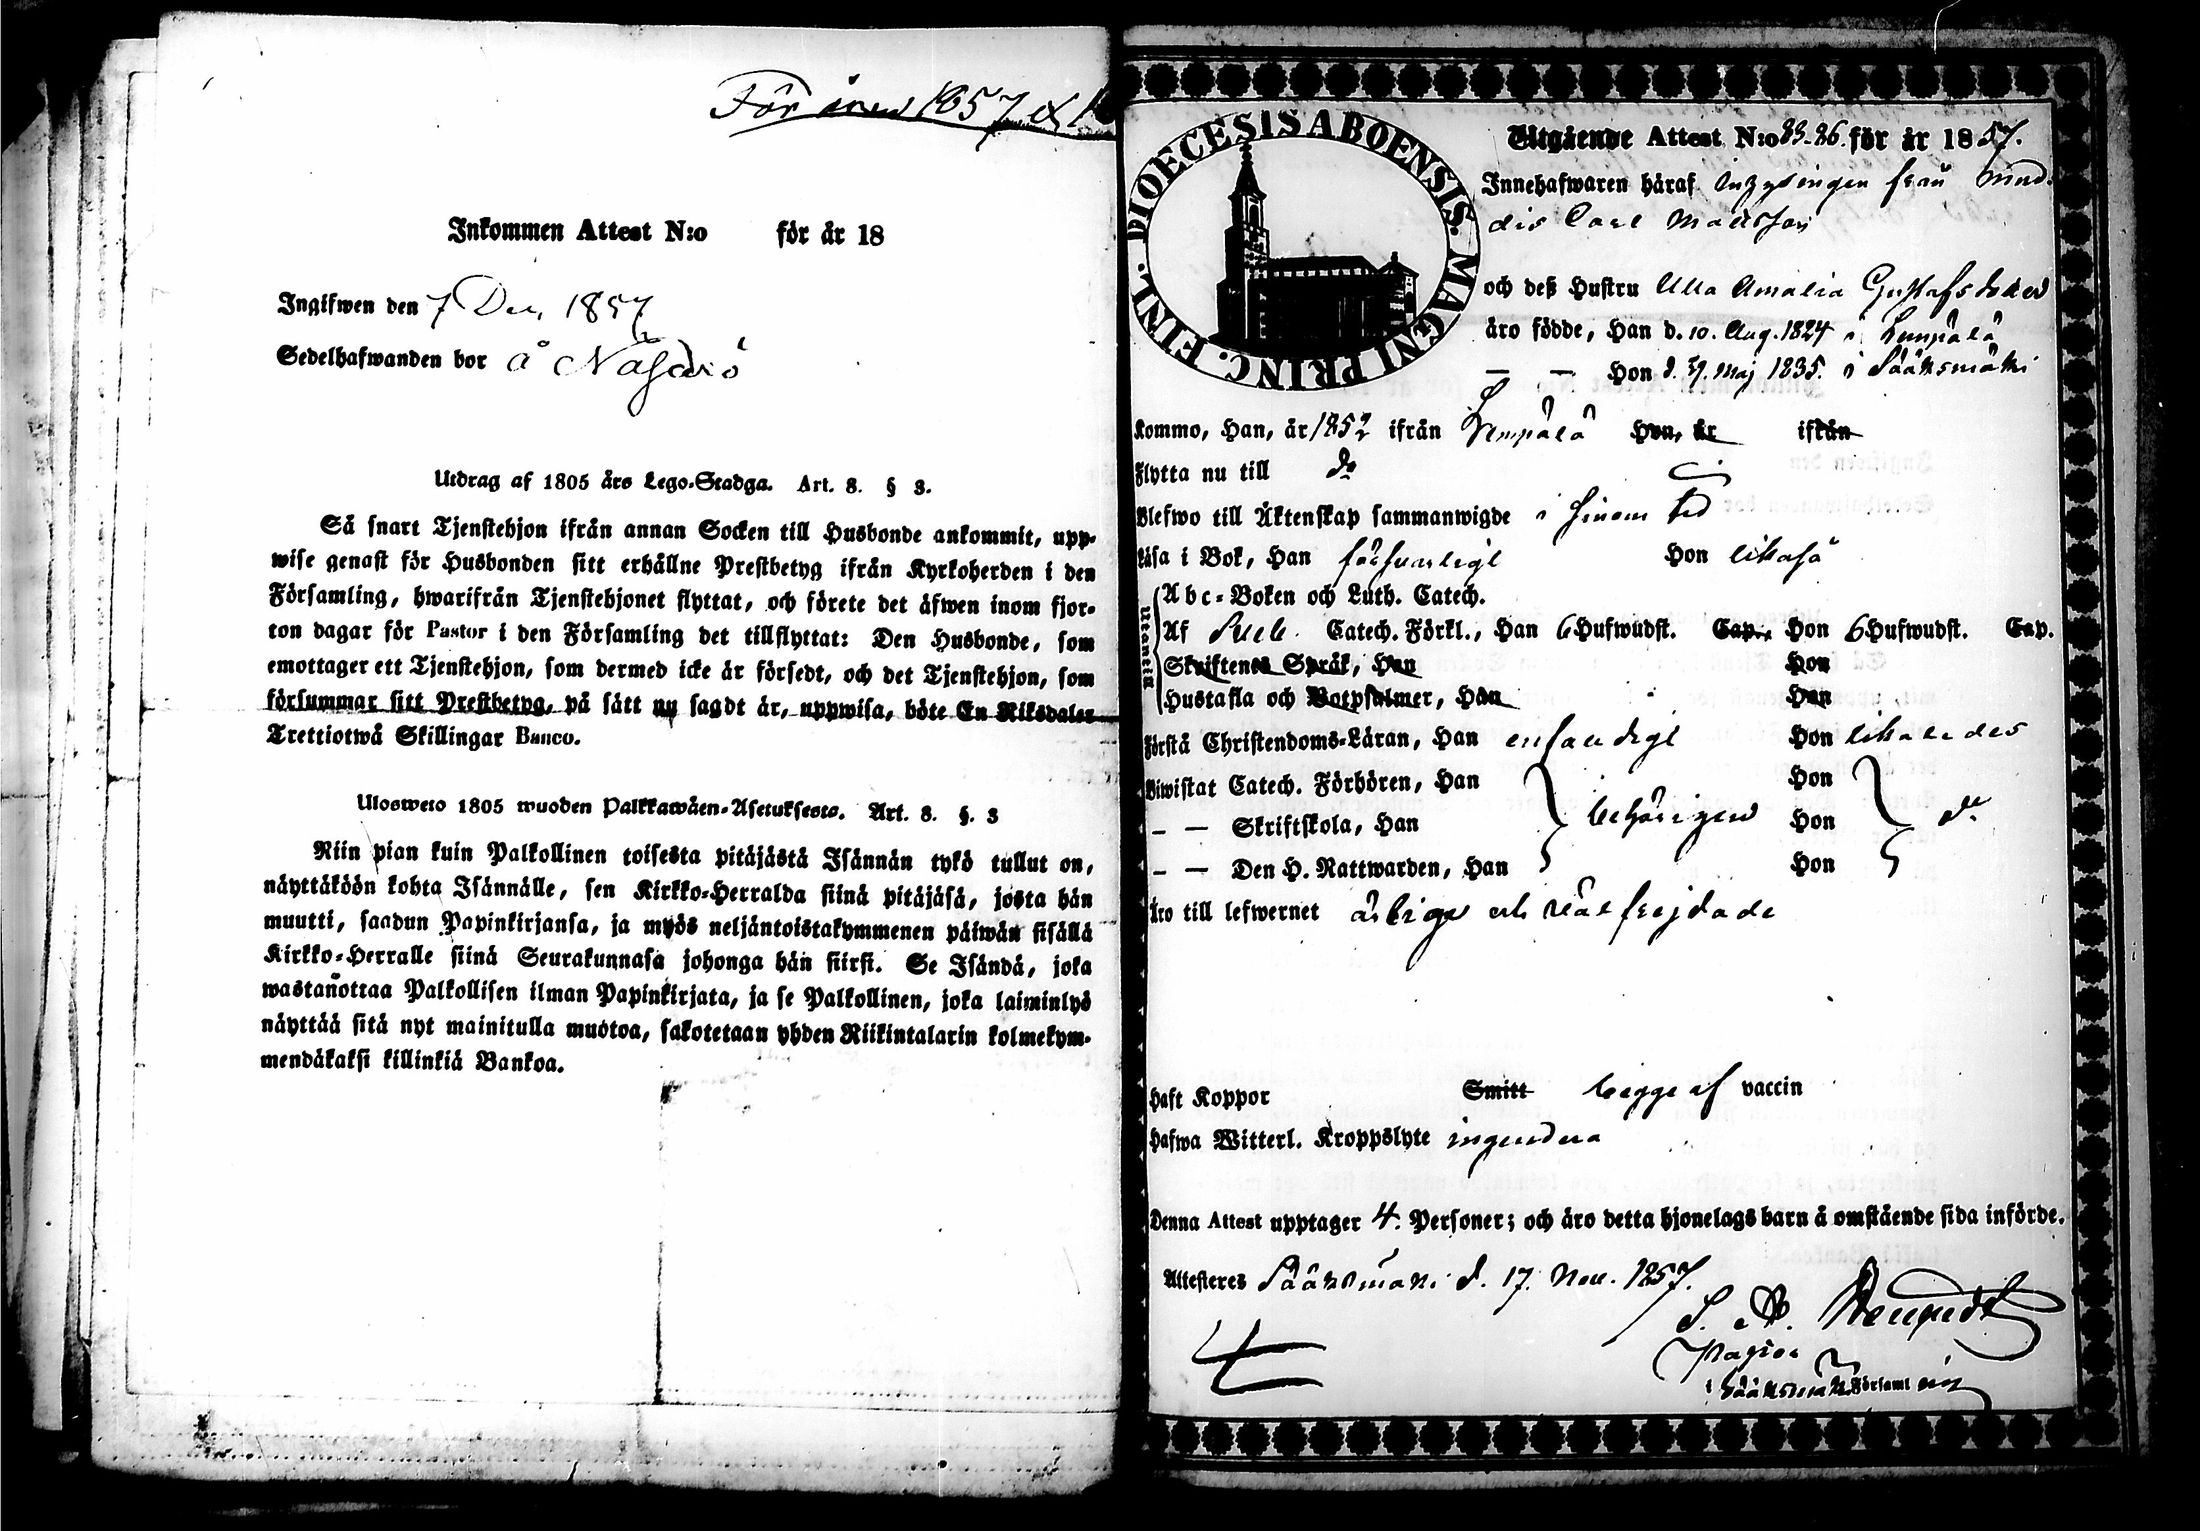 För åren 1857 &
Inkommen Attest N:o för år 18
Ingifwen den 7 Dec, 1857
Sedelhafwanden bor å
Utdrag af 1805 års Lego-Stadga. Art. 8. § 3.
Så snart Tjenstehjon ifrån annan Socken till Husbonde ankommit, upp-
wise genast för Husbonden sitt erhållne Prestbetyg ifrån Kyrkoherden i den
Församling, hwarifrån Tjenstehjonet flyttat, och förete det äfwen inom fjor-
ton dagar för Pastor i den Församling det tillflyttat: Den Husbonde, som
emottager ett Tjenstehjon, som dermed icke är försedt, och det Tjenstehjon, som
försummar sitt Prestbetyg, på sätt nu sagdt är, uppwisa, böte En Riksdaler
Trettiotwå Skillingar Banco.
Ulosweto 1805 wuoden Palkkawäen-Asetuksesta. Art. 8. §. 3
Niin pian kuin Palkollinen toisesta pitäjästä Isännän tykö tullut on,
näyttäköön kohta Isännälle, sen Kirkko-Herralda siinä pitäjäsä, josta hän
muutti, saadun Papinkirjansa, ja myös neljäntoistakymmenen päiwän sisällä
Kirkko-Herralle siinä Seurakunnasa johonga hän siirsi. Se Isändä, joka
wastanottaa Palkollisen ilman Papinkirjata, ja se Palkollinen, joka laiminlyö
näyttää sitä nyt mainitulla muotoa, sakotetaan yhden Riikintalarin kolmekym-
mendäkaksi killinkiä Bankoa.
DIOECESIS ABOENSIS. MAGNI PRINC. FINL.
Utgående Attest N:o 83-86. för år 1857.
Innehafwaren häraf Inhysingen från
Carl Mattsson
och deß Hustru Ulla Amalia Gustafsdotter
äro födde, Han d. 10. Aug. 1824 i Lempälä
— — Hon d. 31. Maj 1835. i Sääksmäki
Kommo, Han, år 1852 ifrån Lempälä Hon, år ifrån
Flytta nu till do
Blefwo till Äktenskap sammanwigde i sinom tid
Läsa i Bok, Han försvarligt Hon likaså
Utantill
Abc-Boken och Luth. Catech.
Af Catech. Förkl., Han 6 Hufwudst. Cap., Hon 6 Hufwudst. Cap.
Skriftenes Språk, Han Hon
Hustafla och Botpsalmer, Han Hon
Förstå Christendoms-Läran, Han enfaldigt Hon likaledes
Biwistat Catech. Förhören, Han Hon
— — Skriftskola, Han behörigen Hon do
— — Den H. Nattwarden, Han Hon
Äro till lefwernet ärlige och väl frejdade
Haft Koppor Smitt begge af vaccin
Hafwa Witterl. Kroppslyte ingendera
Denna Attest upptager 4. Personer; och äro detta hjonelags barn å omstående sida införde.
Attesteres Sääksmäki d. 17. Nov. 1857.
Pastor
i Sääksmäki Församling